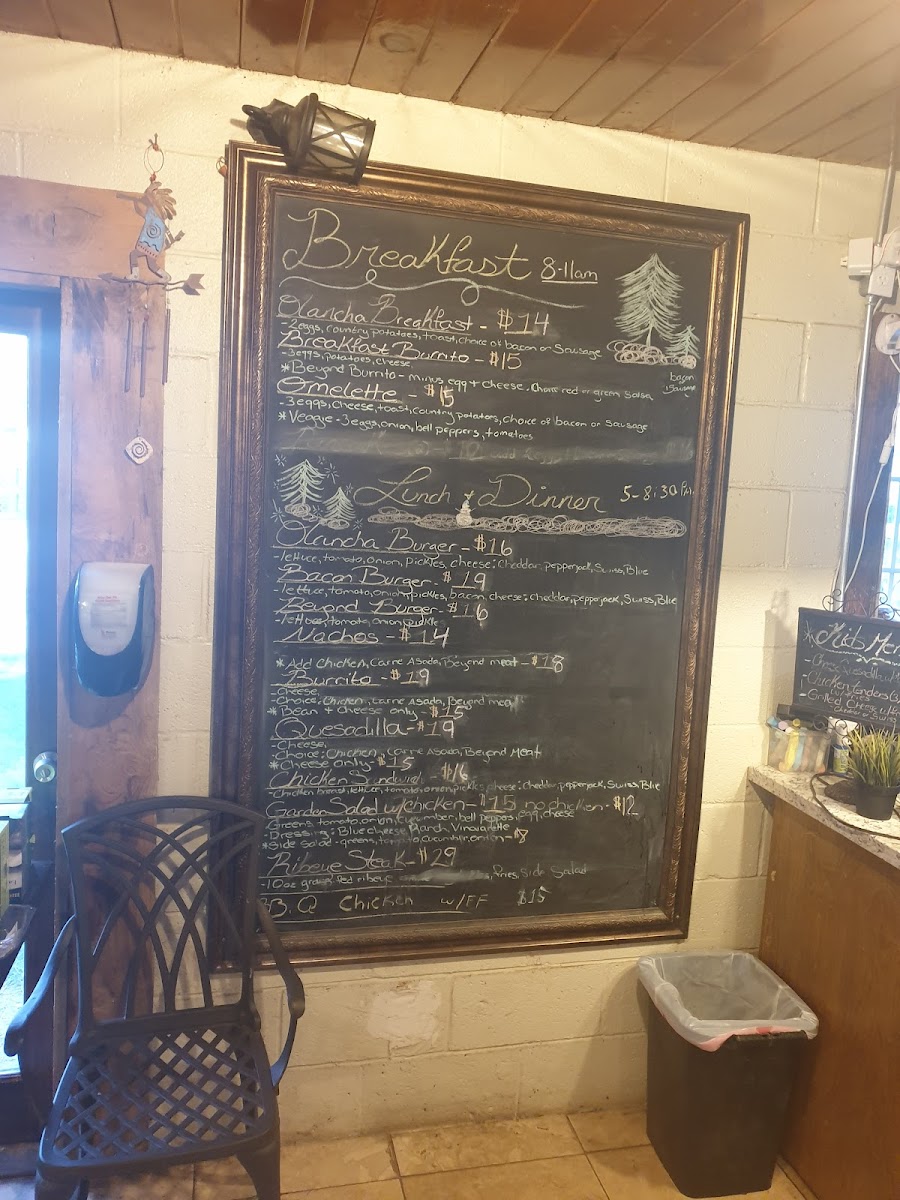 Breakfast 8-11am
Olancha Breakfast - $14
- 2eggs, country potatoes, toast, choice of bacon or Sausage
Breakfast Burrito - $15
- 3eggs, potatoes, cheese,
bacon
Sausage
*Beyond Burrito - minus egg + cheese. Choice red or green Salsa
Omelette - $15
- 3eggs, Cheese, toast, country potatoes, choice of bacon or Sausage
*Veggie - 3eggs, onion, bell peppers, tomatoes
Lunch + Dinner 5-8:30 P.M.
Olancha Burger - $16
- lettuce, tomato, onion, pickles, cheese: Cheddar, pepperjack, Swiss, Blue
Bacon Burger - $19
- lettuce, tomato, onion, pickles, bacon, cheese: cheddar, pepperjack, Swiss, Blue
Beyond Burger - $16
- lettuce, tomato, onion, pickles
Nachos - $14
*Add Chicken, Carne Asada, Beyond meat - $18
Burrito - $19
- Cheese,
- Choice: Chicken, Carne Asada, Beyond meat
*Bean + Cheese only - $15
Quesadilla - $19
- Cheese,
- Choice: Chicken, Carne Asada, Beyond Meat
*Cheese only - $15
Chicken Sandwich $16
- Chicken breast, lettuce, tomato, onion, pickles, cheese: Cheddar, pepperjack, Swiss, Blue
Garden Salad w/chicken - $15 no chicken - $12
- Greens, tomato, onion, cucumber, bell peppers, egg, cheese
- Dressing: Blue cheese, Ranch, Vinaigrette
*Side Salad - greens, tomato, cucumber, onion - $8
Ribeye Steak - $29
- 10oz grass fed ribeye fries, Side Salad
B.B.Q Chicken w/FF $15
*Kids Men
- Cheese Quesadilla
- Chicken tenders
- Grilled Cheese